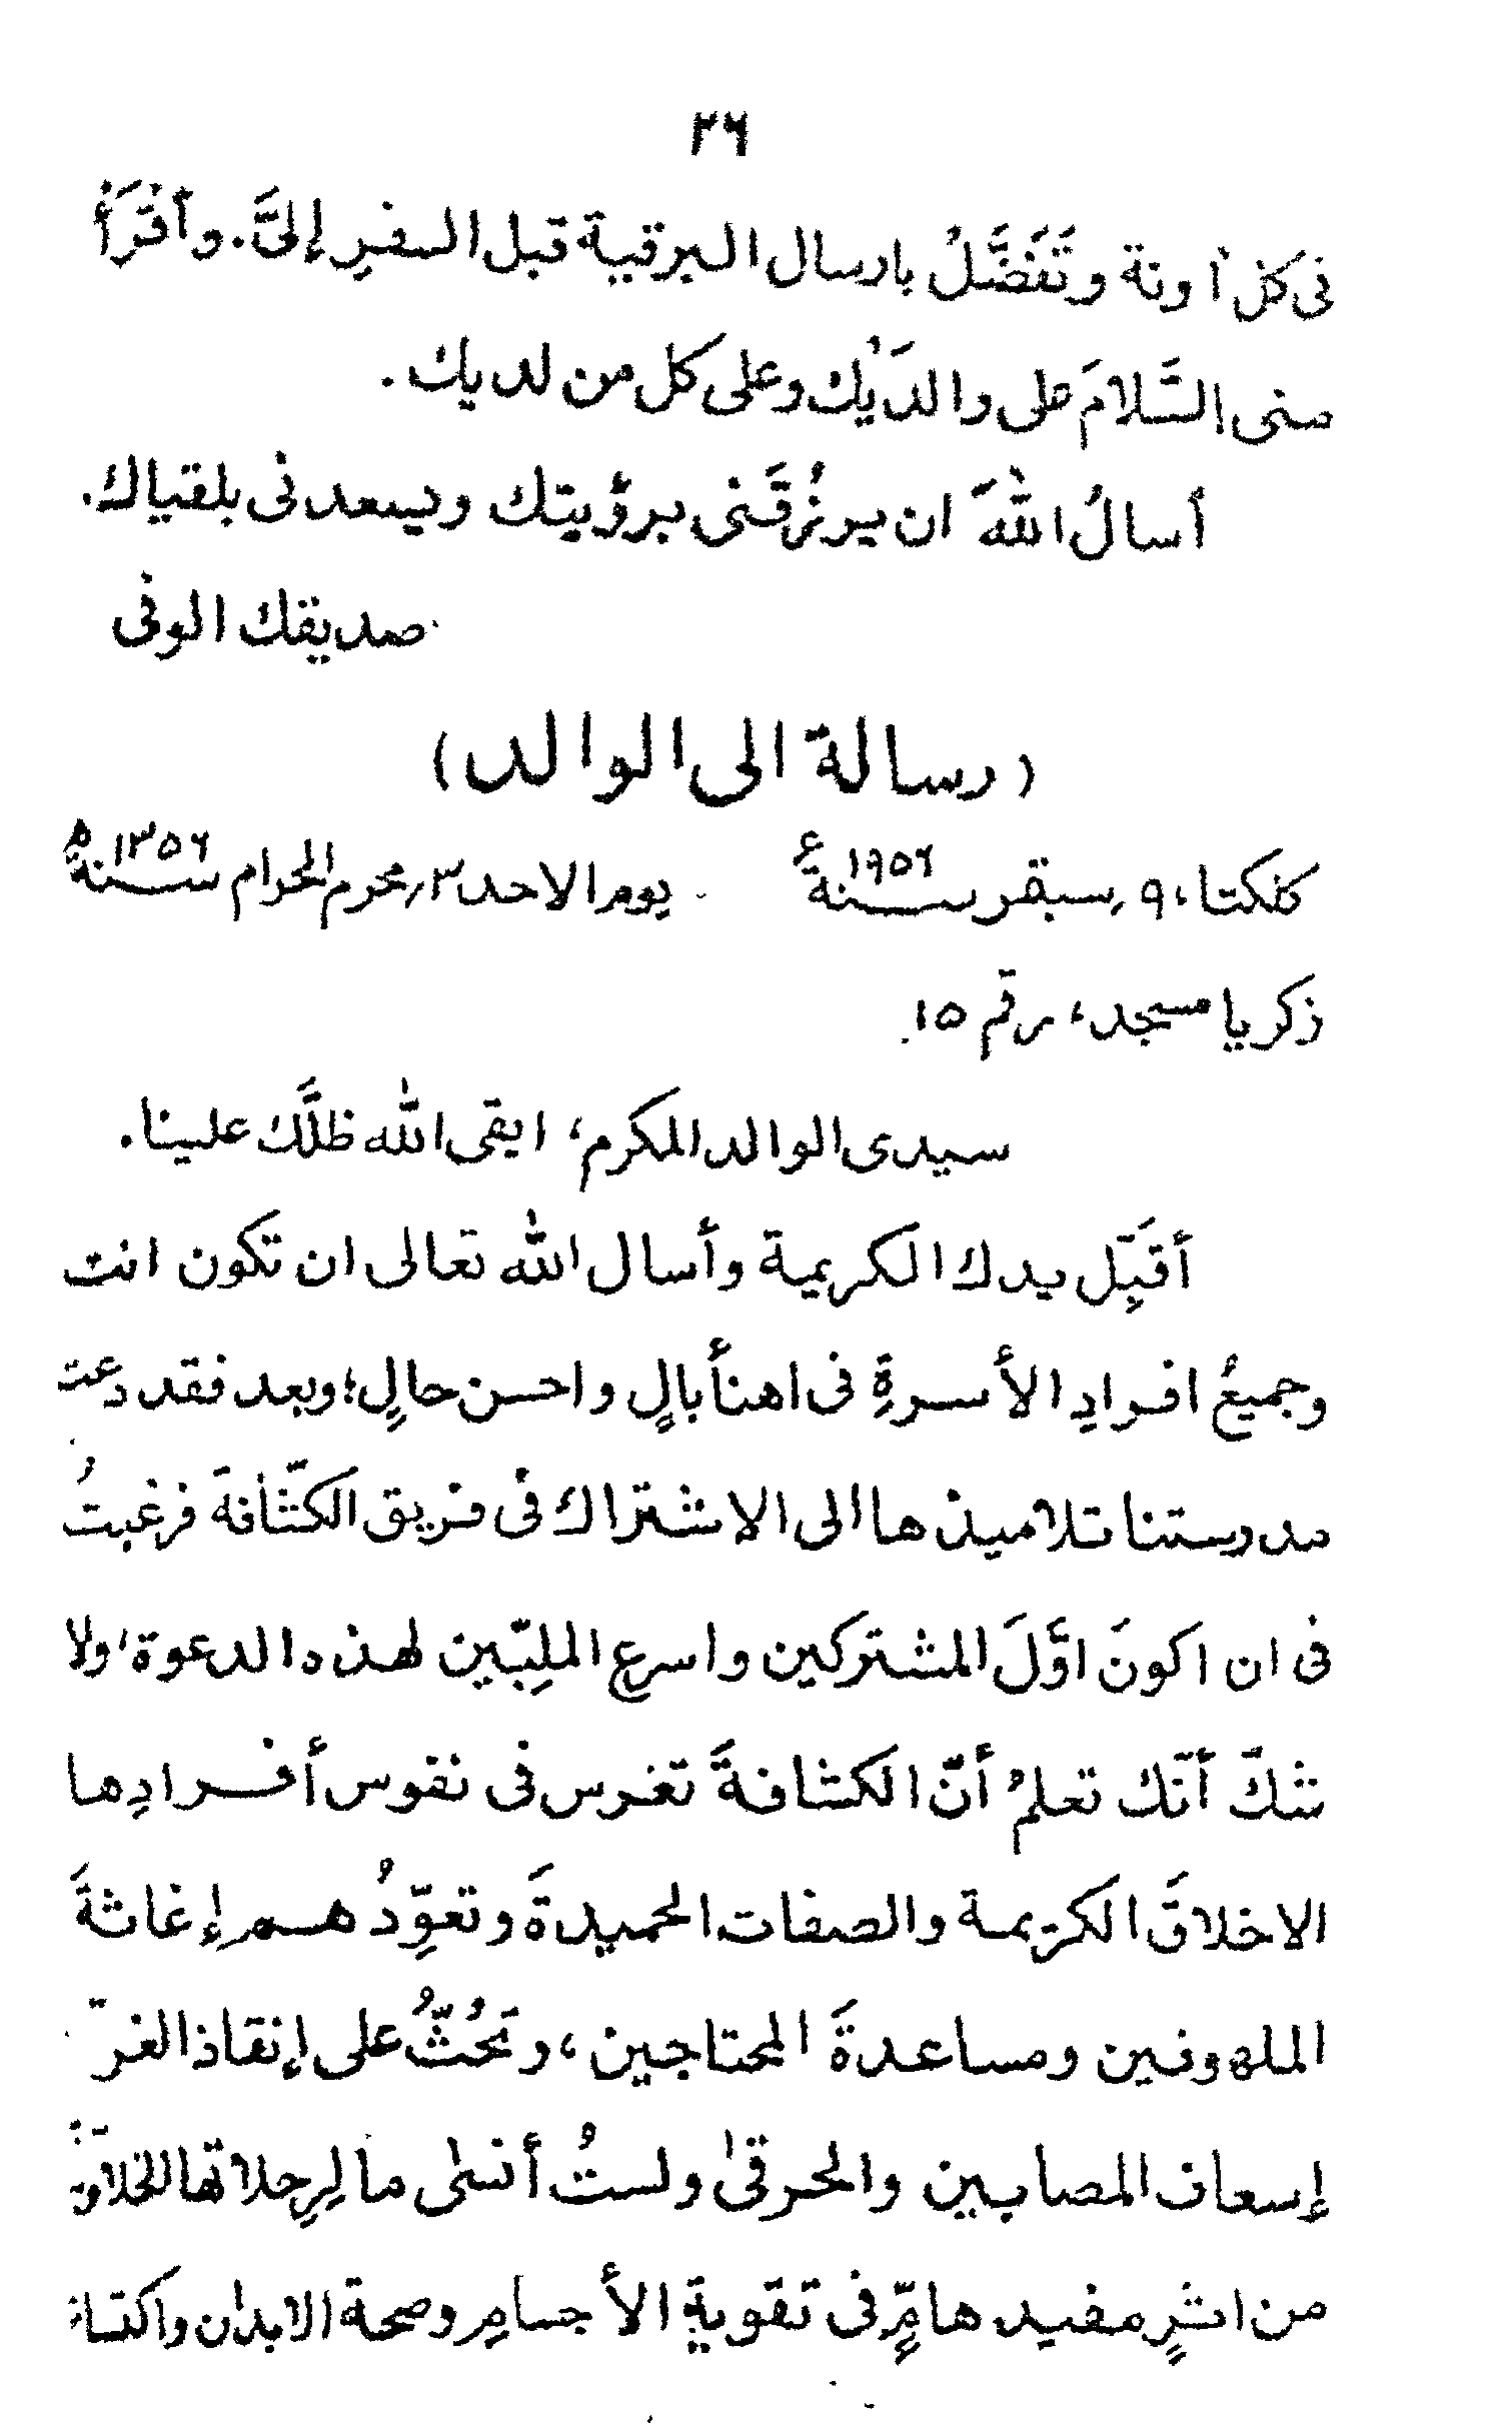 ٢٦
فى كل اٰونة وتَفَضَّلْ بارسال البرقية قبل السفرِ إلىَّ. وأقْرَأْ
منى السَّلامَ على والدَيْك وعلى كل من لديك.
أسالُ اللّٰهَ ان يرزُقَنى برؤيتك ويسعدنى بلقياك.
صديقك الوفى
(رسالة الى الوالد)
كلكتا، ٩؍سبتمبر سنة ١٩٥٦ع يوم الاحد ٣؍محرم الحرام سنة ١٣٥٦ه
زكريا مسجد، رقم ١٥.
سيدى الوالد المكرم، ابقى اللّٰه ظلَّك علينا.
أقبِّل يدك الكريمة وأسال اللّٰه تعالى ان تكون انت
وجميعُ افرادِ الأسرةِ فى اهنأ بالٍ واحسن حالٍ؛ وبعد فقد دعت
مدرستنا تلاميذها الى الاشتراك فى فريق الكشّافة فرغبتُ
فى ان اكونَ اوَّلَ المشتركين واسرع الملبِّين لهذه الدعوة، ولا
شكَّ أنّك تعلمُ أنّ الكشافةَ تغرس فى نفوس أفرادِها
الاخلاقَ الكريمة والصفات الحميدةَ وتعوِّدُهم إغاثةَ
الملهوفين ومساعدةَ المحتاجين، وتَحُثُّ على إنقاذ الغر
إسعاف المصابين والحرقىٰ ولستُ أنسٰى ما لِرحلاتها الخلاّ
من اثرٍ مفيد هامٍّ فى تقويةِ الأجسامِ وصحة الابدان واكتسا